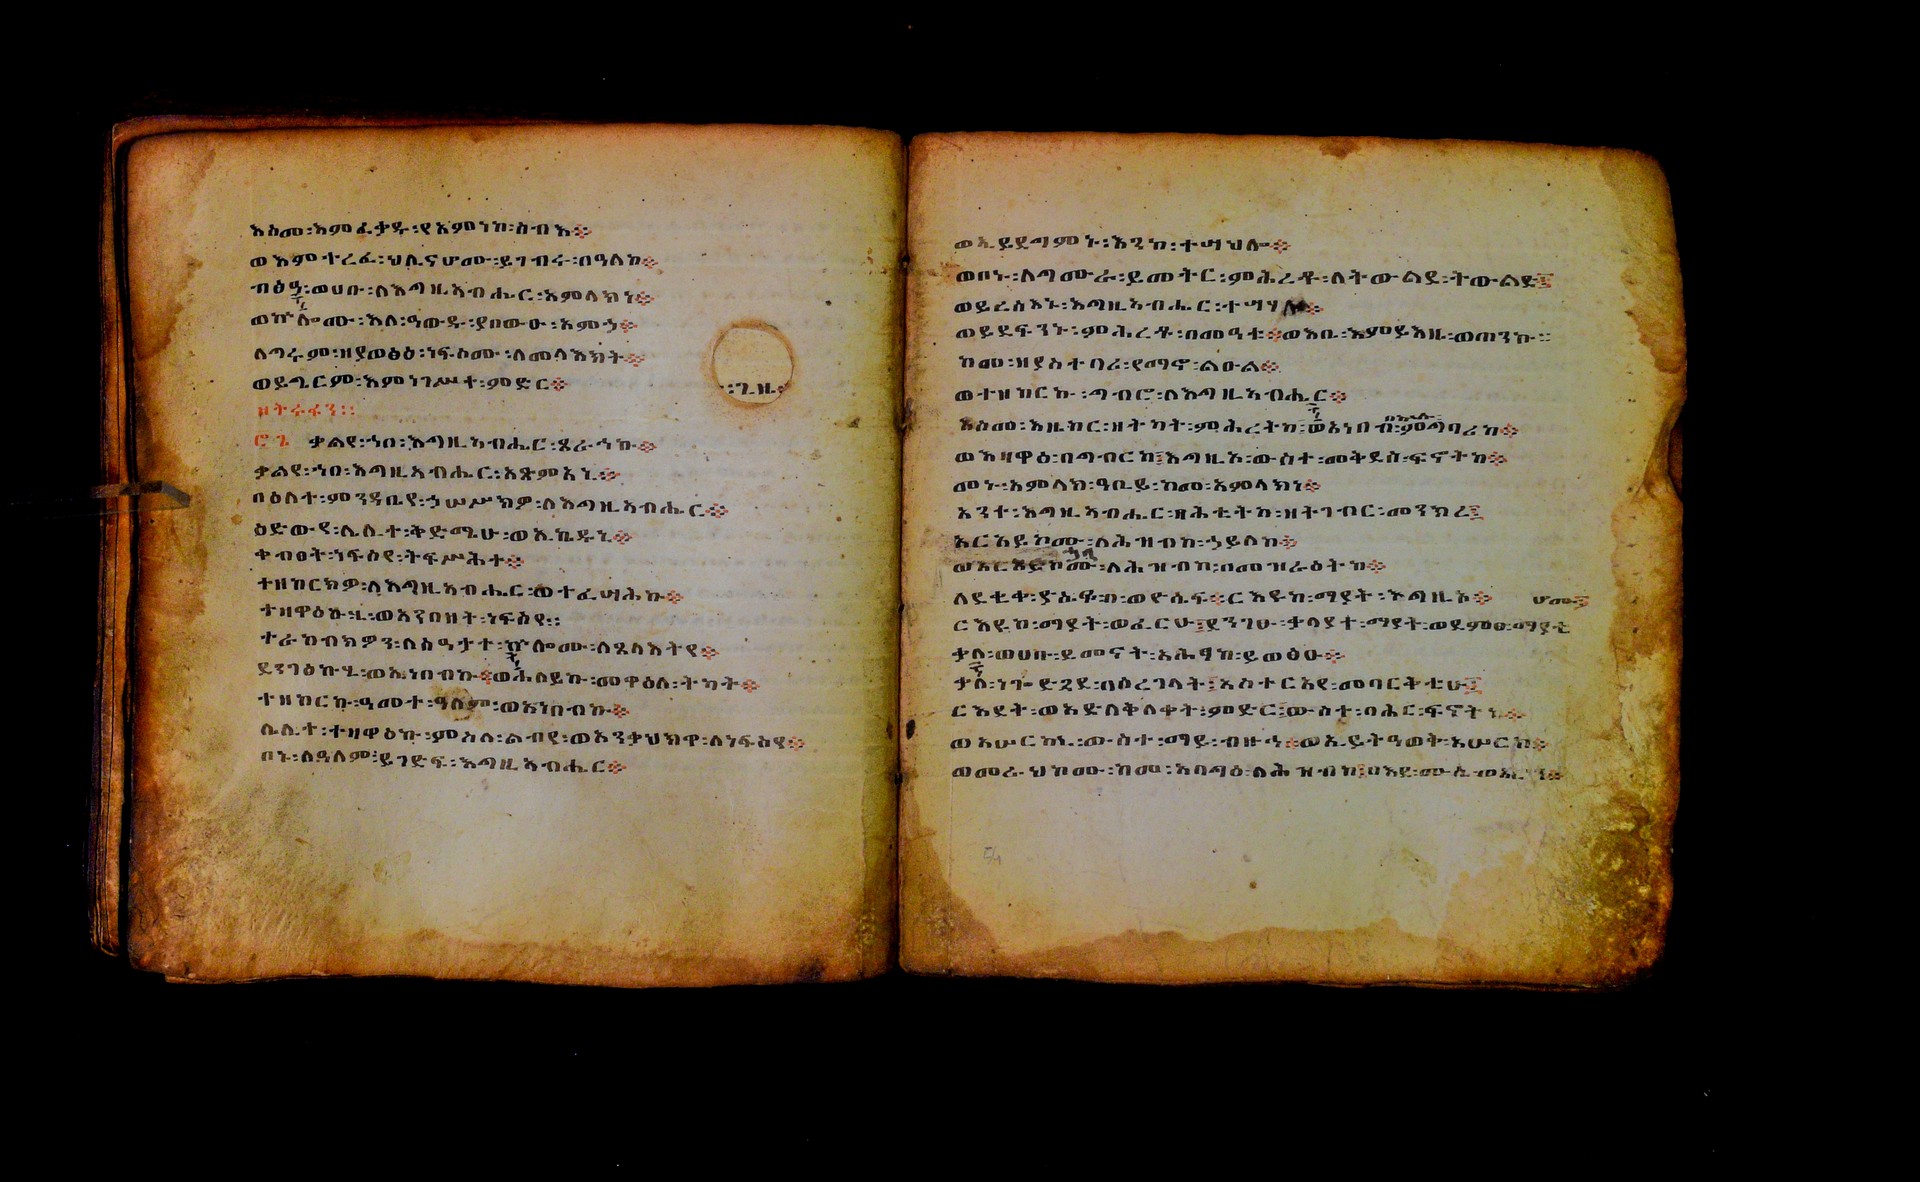 እስመ፡እምፈቃዱ፡የአምነከ፡ሰብእ፨
ወእምተረፈ፡ህሊናሆሙ፡ይገብሩ፡በዓለከ፨
ብፅዓ፡ወሀቡ፡ለእግዚአብሔር፡አምላክነ፨
ወኵሎሙ፡እለ፡ዓውዱ፡ያበውዑ፡አምኃ፨
ለግሩም፡ዘያወፅዕ፡ነፍሶሙ፡ለመላእክት፨
ወይጌርም፡እምነገሥተ፡ምድር፨
ቃልየ፡ኀበ፡እግዚአብሔር፡ጸራኅኩ፨
ቃልየ፡ኀበ፡እግዚአብሔር፡አጽምአኒ፨
በዕለተ፡ምንዳቤየ፡ኃሠሥክዎ፡ለእግዚአብሔር፨
ዕድውየ፡ሌሊተ፡ቅድሜሁ፡ወኢኬዱኒ፨
ቀብፀት፡ነፍስየ፡ትፍሥሕተ፨
ተዘከርክዎ፡ለእግዚአብሔር፡ወተፈሣሕኩ፨
ተዛዋዕኩ፡ኒ፡ወአንበዘት፡ነፍስየ፡፡
ተራከብክዎን፡ለሰዓታተ፡ኵሎሙ፡ለጸላእትየ፨
ደንገፅኩሂ፡ወኢነበብኩ፨ወሐለይኩ፡መዋዕለ፡ትካት፨
ተዘከርኩ፡ዓመተ፡ዓለም፡ወአነበብኩ፨
ሌሊተ፡ተዛዋዕኩ፡ምስለ፡ልብየ፡ወአንቃህክዋ፡ለነፍስየ፨
በኑ፡ለዓለም፡ይገድፍ፡እግዚአብሔር፨
ወኢይደግምኑ፡እንከ፡ተሣህሎ፨
ወቦኑ፡ለግሙራ፡ይመትር፡ምሕረቶ፡ለትውልደ፡ትውልድ፤
ወይረስእኑ፡እግዚአብሔር፡ተሣህሎ፨
ወይደፍንኑ፡ምሕረቶ፡በመዓቱ፨ወእቤ፡እምይእዜ፡ወጠንኩ፡፡
ከመ፡ዘያስተባሪ፡የማኖ፡ልዑል፨
ወተዘከርኩ፡ግብሮ፡ለእግዚአብሔር፨
እስመ፡እዜከር፡ዘትካት፡ምሕረትከ፤
ወእዛዋዕ፡በግብርከ፤እግዚኦ፡ውስተ፡መቅደስ፡ፍኖትከ፨
መኑ፡አምላክ፡ዓቢይ፡ከመ፡አምላክነ፨
አንተ፡እግዚአብሔር፡ዘትገብር፡መንክረ፤
አርአይኮሙ፡ለሕዝብከ፡ኃይለከ፨
ለሕዝብከ፡በመዝራዕትከ፨
ለደቂቀ፡ያዕቆብ፡ወዮሴፍ፨ርእዩከ፡ማያት፡እግዚኦ፨
ርእዩከ፡ማያት፡ወፈርሁ፤ደንገፁ፡ቀላያተ፡ማያት፡
ቃለ፡ወሀቡ፡ደመናት፡አሕፃከ፡ይወፅዑ፨
ቃለ፡ነጐድጓድ፡በሰረገላት፤አስተርአየ፡መባርቅቲሁ፤
ርእደት፡ወአድለቅለቀት፡ምድር፤ውስተ፡ባሕር፡ፍኖትከ፨
ወአሠርከኒ፡ውስተ፡ማይ፡ብዙኅ፨ወኢይትዓወቅ፡አሠርከ፨
ወመራህኮሙ፡ከመ፡አባግዕ፡ለሕዝብከ፤በእደ፡ሙሴ፡ወአሮን፨
54